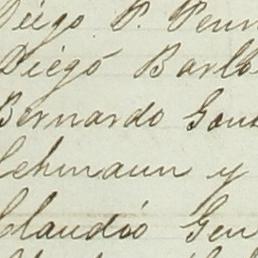 Diego P. Penn
Diégó Barlo
Bernardo Gons
Lehmann y
Claudio Gen